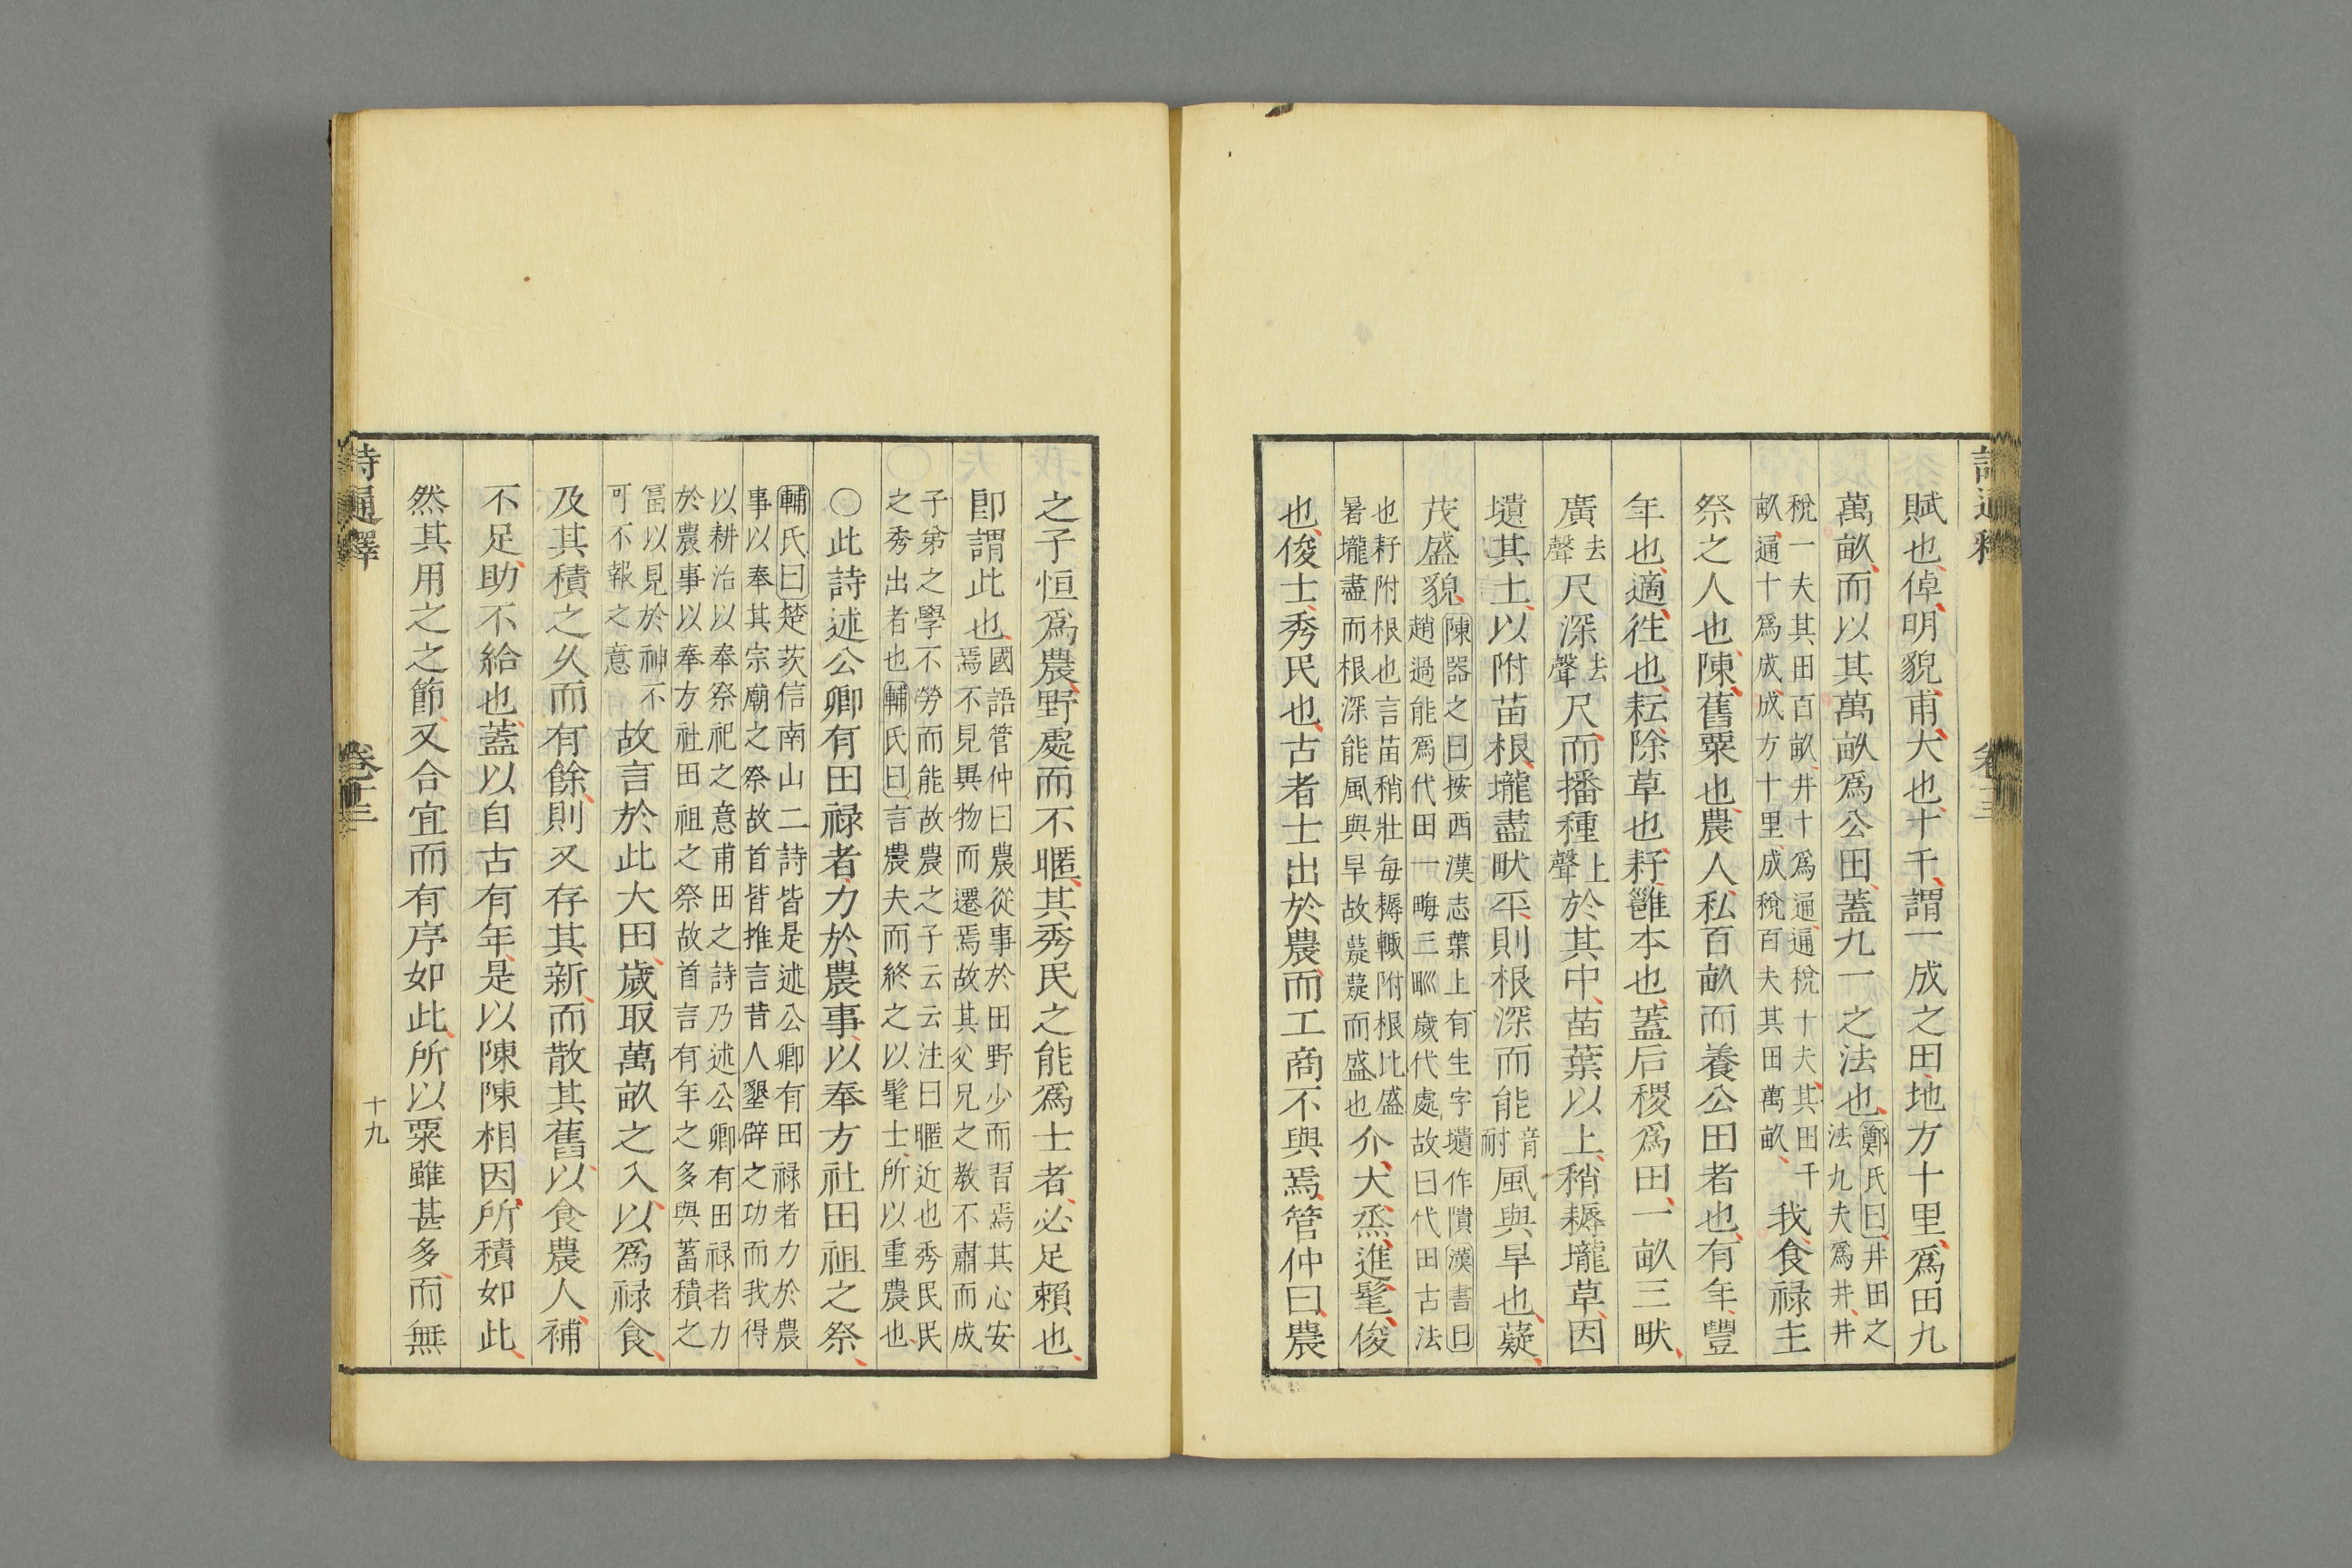 賦也倬明貌甫大也十千謂一成之田地方十里爲田九
萬畝而以其萬畝爲公田蓋九一之法也鄭氏曰井田之
法九夫爲井井
稅一夫其田百畝井十爲通通稅十夫其田千
畝通十爲成成方十里成稅百夫其田萬畝我食祿主
祭之人也陳舊粟也農人私百畝而養公田者也有年豐
年也適往也耘除草也耔雝本也蓋后稷爲田一畝三畎
廣去
聲尺深去
聲尺而播種上
聲於其中苗葉以上稍耨壠草因
壝其土以附苗根壠盡畎平則根深而能音
耐風與旱也薿
茂盛貌陳器之曰按西漢志葉上有生字壝作隤漢書曰
趙過能爲代田一畮三甽歲代處故曰代田古法
也耔附根也言苗稍壯每耨輒附根比盛
暑壠盡而根深能風與旱故薿薿而盛也介大烝進髦俊
也俊士秀民也古者士出於農而工商不與焉管仲曰農
之子恒爲農野處而不暱其秀民之能爲士者必足賴也
卽謂此也國語管仲曰農從事於田野少而習焉其心安
焉不見異物而遷焉故其父兄之教不肅而成
子弟之學不勞而能故農之子云云注曰暱近也秀民民
之秀出者也輔氏曰言農夫而終之以髦士所以重農也
○此詩述公卿有田祿者力於農事以奉方社田祖之祭
輔氏曰楚茨信南山二詩皆是述公卿有田祿者力於農
事以奉其宗廟之祭故首皆推言昔人墾辟之功而我得
以耕治以奉祭祀之意甫田之詩乃述公卿有田祿者力
於農事以奉方社田祖之祭故首言有年之多與蓄積之
富以見於神不
可不報之意故言於此大田歲取萬畝之入以爲祿食
及其積之久而有餘則又存其新而散其舊以食農人補
不足助不給也蓋以自古有年是以陳陳相因所積如此
然其用之之節又合宜而有序如此所以粟雖甚多而無
詩通釋
卷十三
十九